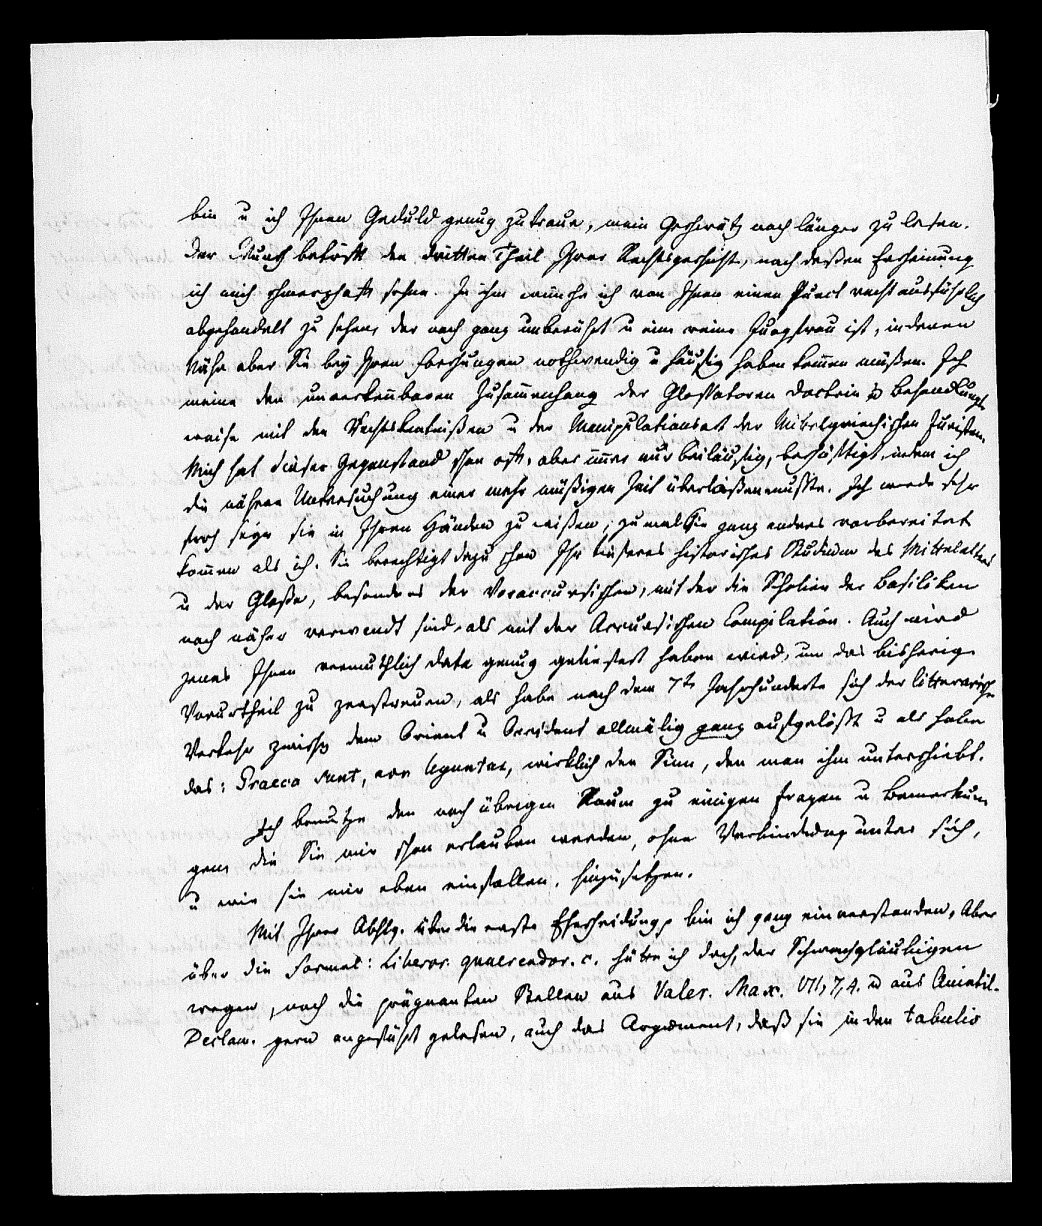 bin u ich Ihnen Geduld genug zutraue, mein Geschwätz noch länger zu lesen.
Der Wunsch betrifft den dritten Theil Ihrer Rechtsgeschichte, nach deßen Erscheinung
ich mich schmerzhaft sehne. In ihm wünsche ich von Ihnen einen Punct recht ausführlich
abgehandelt zu sehen, der noch ganz unberührt u eine reine Jungfrau ist, in deren
Nähe aber Sie bey Ihren Forschungen nothwendig u häufig haben kom̅en müßen. Ich
meine den unverken̅baren Zusam̅enhang der Glossatoren Doctrin u Behandlungs
weise mit den Rechtskentnißen u der Manipulationsart der Mittelgriechischen Juristen.
Mich hat dieser Gegenstand schon oft, aber im̅er nur beiläufig, beschäftigt, indem ich
die nähere Untersuchung einer mehr müßigen Zeit überlaßen mußte. Ich werde sehr
froh seyn sie in Ihren Händen zu wißen, zumal Sie ganz anders vorbereitet
kom̅en als ich. Sie berechtigt dazu schon Ihr tieferes historisches Studium des Mittelalters
u der Gloße, besonders der Voraccursischen, mit der die Scholien der Basiliken
noch näher verwandt sind, als mit der Accursischen Compilation. Auch wird
jenes Ihnen vermuthlich Data genug geliefert haben wird, um das bisherige
Vorurtheil zu zerstreuen, als habe nach dem 7ten Jahrhunderte sich der litterarische
Verkehr zwischen dem Orient u Occident allmälig ganz aufgelößt u als habe
das: Graeca sunt, non leguntur, wirklich den Sinn, den man ihm unterschiebt.
Ich benutze den noch übrigen Raum zu einigen Fragen u Bemerkun
gen, die Sie mir schon erlauben werden, ohne Verbindung unter sich,
u wie sie mir eben einfallen, hinzusetzen.
Mit Ihrer Abhlg. über die erste Ehescheidung, bin ich ganz einverstanden, Aber
über die Formel: Liberor. quaerendor. c. hätte ich doch, der Schwachgläubigen
wegen, noch die prägnanten Stellen aus Valer. Max. VII, 7, 4. u aus Quintil.
Declam. gern angeführt gelesen, auch das Argument, daß sie in den tabulis